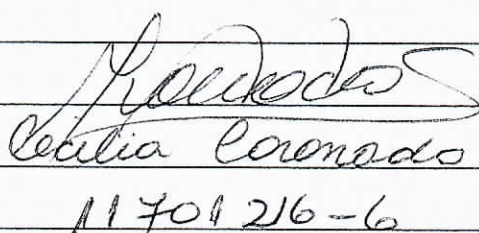 Cecilia Coronado
11701216-6